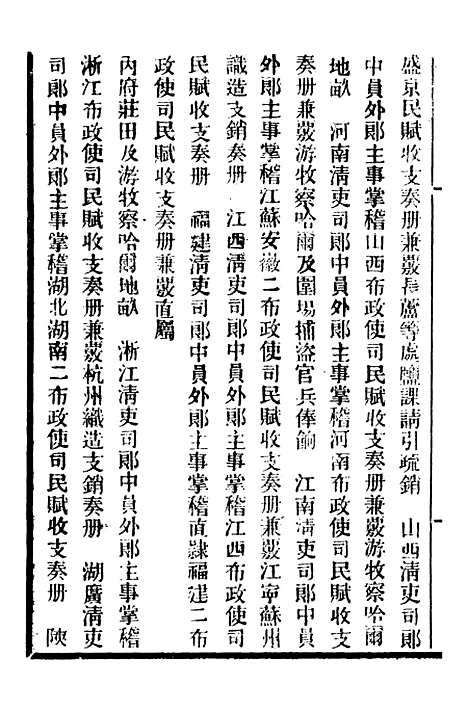 盛京民賦收支奏册兼覈長蘆等處鹽課請引疏銷　山西清吏司郎
中員外郎主事掌稽山西布政使司民賦收支奏册兼覈游牧察哈爾
地畝　河南清吏司郎中員外郎主事掌稽河南布政使司民賦收支
奏册兼覈游牧察哈爾及圍場捕盜官兵俸餉　江南清吏司郎中員
外郎主事掌稽江蘇安徽二布政使司民賦收支奏册兼覈江寧蘇州
織造支銷奏册　江西清吏司郎中員外郎主事掌稽江西布政使司
民賦收支奏册　福建清吏司郎中員外郎主事掌稽直隸福建二布
政使司民賦收支奏册兼覈直屬
內府莊田及游牧察哈爾地畝　浙江清吏司郎中員外郎主事掌稽
浙江布政使司民賦收支奏册兼覈杭州織造支銷奏册　湖廣清吏
司郎中員外郎主事掌稽湖北湖南二布政使司民賦收支奏册　陝